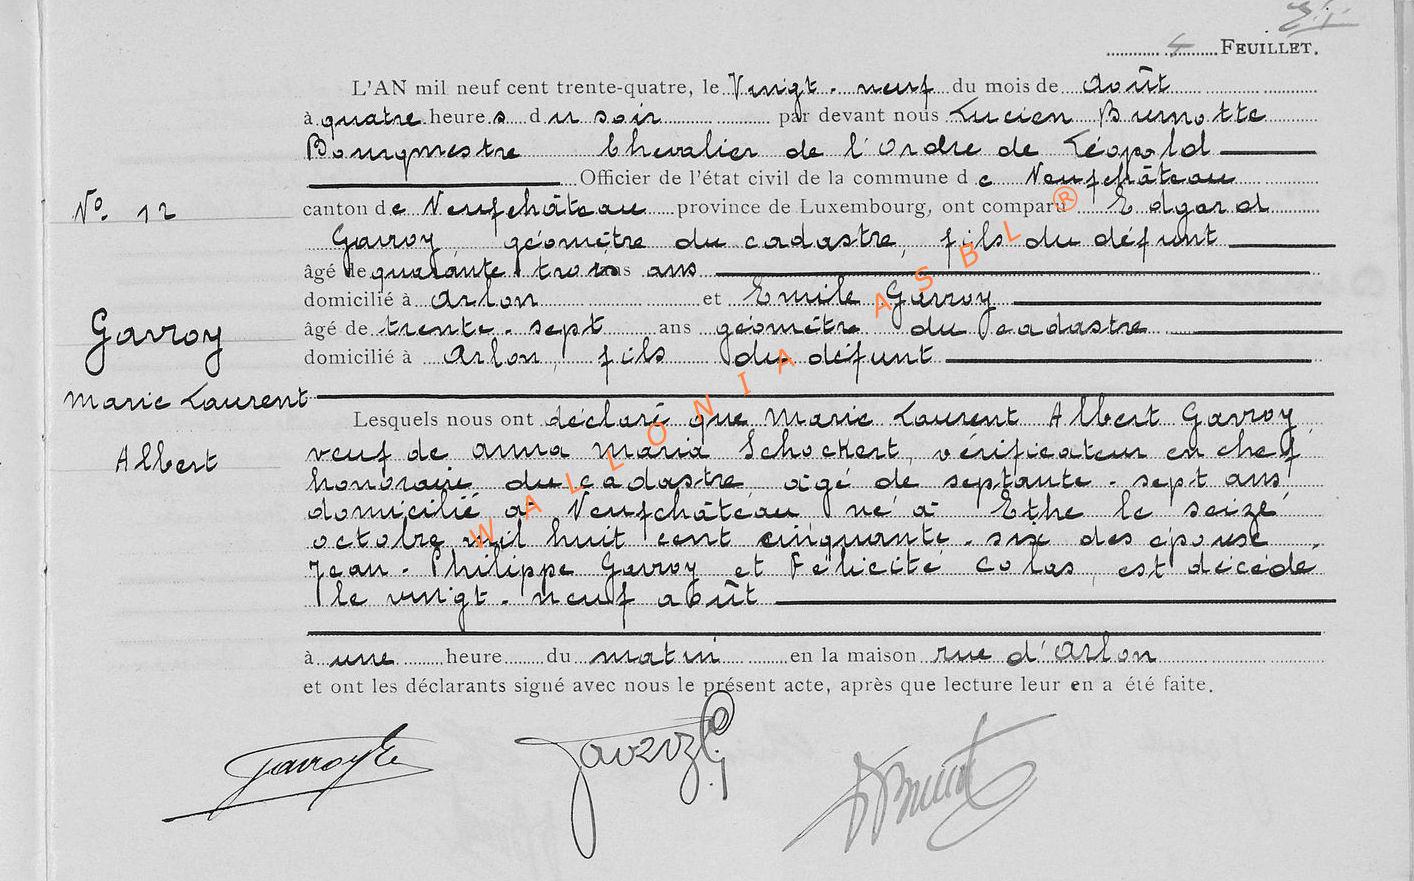 4 FEUILLET.
L'AN mil neuf cent trente-quatre, le Vingt-neuf du mois de Août
à quatre heures du soir par devant nous Lucien Burnotte
Bourgmestre Chevalier de l'Ordre de Léopold
Officier de l'état civil de la commune de Neufchâteau
N° 12
canton de Neufchâteau province de Luxembourg, ont comparu Edgard
Gavroy géomètre du cadastre, fils du défunt
âgé de quarante trois ans
domicilié à Arlon et Emile Gavroy
âgé de trente-sept ans géomètre du cadastre
domicilié à Arlon, fils du défunt
Gavroy
Marie Laurent
Albert
Lesquels nous ont déclaré que Marie Laurent Albert Gavroy
veuf de Anna Maria Schockert, vérificateur en chef
honoraire du cadastre, âgé de septante-sept ans
domicilié à Neufchâteau né à Ethe le seize
octobre mil huit cent cinquante-six des époux
Jean-Philippe Gavroy et Félicité Colas, est décédé
le vingt-neuf août
à une heure du matin en la maison rue d'Arlon
et ont les déclarants signé avec nous le présent acte, après que lecture leur en a été faite.
WALLONIA ASBL ®